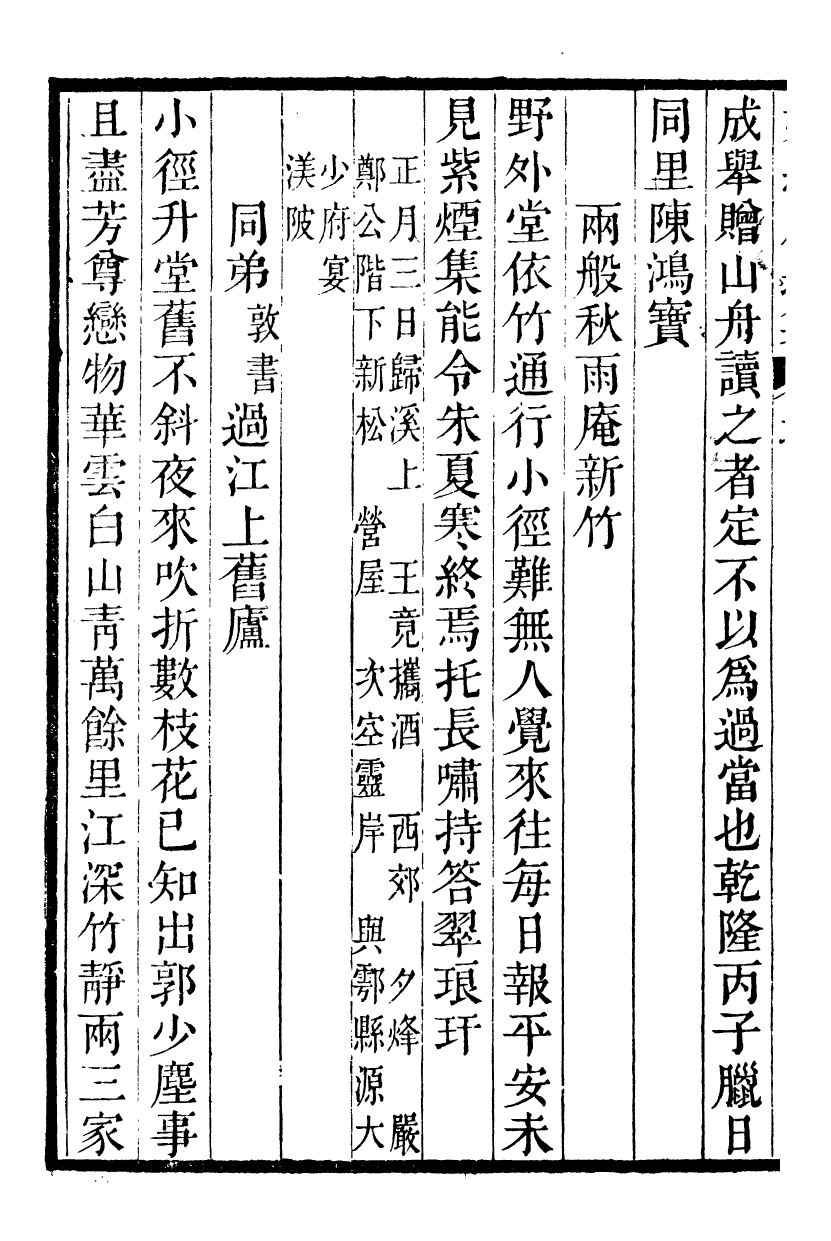 成舉贈山舟讀之者定不以爲過當也乾隆丙子臘日
同里陳鴻寶
兩般秋雨庵新竹
野外堂依竹通行小徑難無人覺來往每日報平安未
見紫煙集能令朱夏寒終焉托長嘯持答翠琅玕
正月三日歸溪上　王竟攜酒　西郊　夕烽　嚴
鄭公階下新松　營屋　次空靈岸　與鄠縣源大
少府宴
渼陂
同弟敦書過江上舊廬
小徑升堂舊不斜夜來吹折數枝花已知出郭少塵事
且盡芳尊戀物華雲白山靑萬餘里江深竹靜兩三家